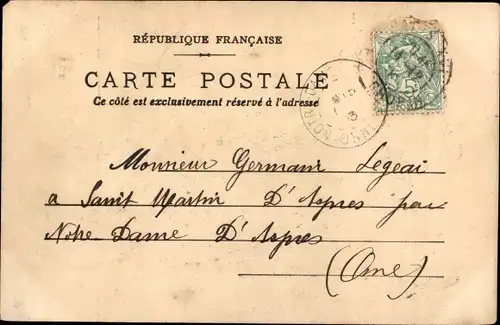 RÉPUBLIQUE FRANÇAISE
CARTE POSTALE
Ce côté est exclusivement réservé à l'adresse
Monsieur Germain Legeai
a Saint Martin D'Aspres par
Notre Dame D'Aspres
(Orne)